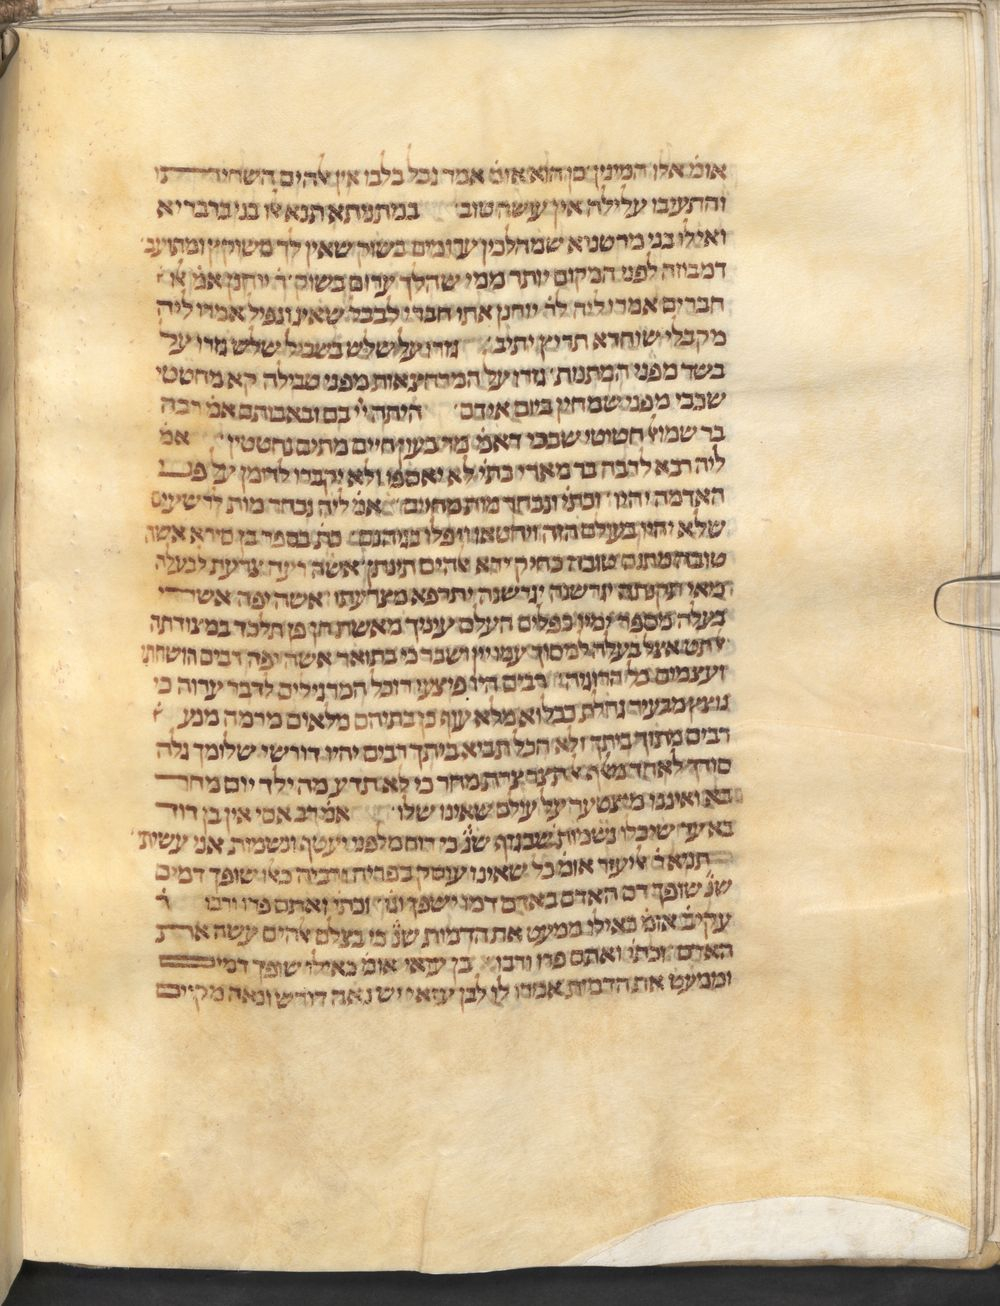 אומ' אלו המינין וכן הוא אומ' אמר נבל בלבו אין אלהים השחיתו
והתעיבו עלילה אין עושה טוב במתניתא תנא אלו בני ברבריא
ואילו בני מרטנוא שמהלכין ערומים בשוק שאין לך משוקץ ומתועב
דמבוזה לפני המקום יותר ממי שהלך ערום בשוק ר' יוחנן אמ' אלו
חברים אמרו ליה לר' יוחנן אתו חברי לבבל שאינו נפיל אמרו ליה
מקבלי שוחדא תריץ יתיב גזרו על שלש בשביל שלש גזרו על
בשר מפני המתנות גזרו על המרחצאות מפני טבילה קא מחטטי
שכבי מפני שמחין ביום אידם היתה יי' בם ובאבותם אמ' רבה
בר שמואל חטוטי שכבי דאמ' מר בעון חיים מתים נחטטין אמ'
ליה רבא לרבה בר מארי כתי' לא יאספו ולא יקברו לדומן על פני
האדמה יהיו וכתי' ונבחר מות מחיים אמ' ליה נבחר מות לרשעים
שלא יחיו בעולם הזה ויחטאו ויפלו בגיהנם כת' בספר בן סירא אשה
טובה מתנה טובה בחיק ירא אלהים תינתן אשה רעה צרעת לבעלה
מאי תקנתה יגרשנה יגרשנה יתרפא מצרעתו אשה יפה אשרי
בעלה מספר ימיו כפלים העלם עיניך מאשת חן פן תלכד במצודתה
אל תט אצל בעלה למסוך עמו יין ושכר כי בתואר אשה יפה רבים הושחתו
ועצומים כל הרוגיה רבים היו פיצעי רוכל המרגילים לדבר ערוה כי
ניצוץ מבעיר גחלת ככלוב מלא עוף כן בתיהם מלאים מרמה מנע
רבים מתוך ביתך ולא הכל תביא ביתך רבים יהיו דורשי שלומך גלה
סודך לאחד מאלף אל תצר צרת מחר כי לא תדע מה ילד יום מחר
בא ואיננו מצטער על עולם שאינו שלו אמ' רב אסי אין בן דוד
בא עד שיכלו נשמות שבגוף שנ' כי רוח מלפני יעטף ונשמות אני עשיתי
תניא ר' אליעזר אומ' כל שאינו עוסק בפריה ורביה כאלו שופך דמים
שנ' שופך דם האדם באדם דמו ישפך וגו' וכתי' ואתם פרו ורבו ר'
עקיב' אומ' כאילו ממעט את הדמות שנ' כי בצלם אלהים עשה את
האדם וכתי' ואתם פרו ורבו בן עזאי אומ' כאילו שופך דמים
וממעט את הדמות אמרו לו לבן עזאי יש נאה דורש ונאה מקיים